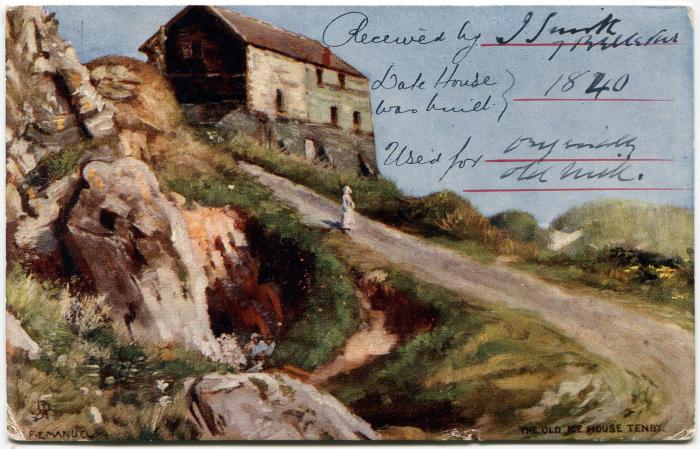 Received by J Smith
Date House
was built } 1840
Used for originally
old
F. EMANUEL
THE OLD ICE HOUSE TENBY.